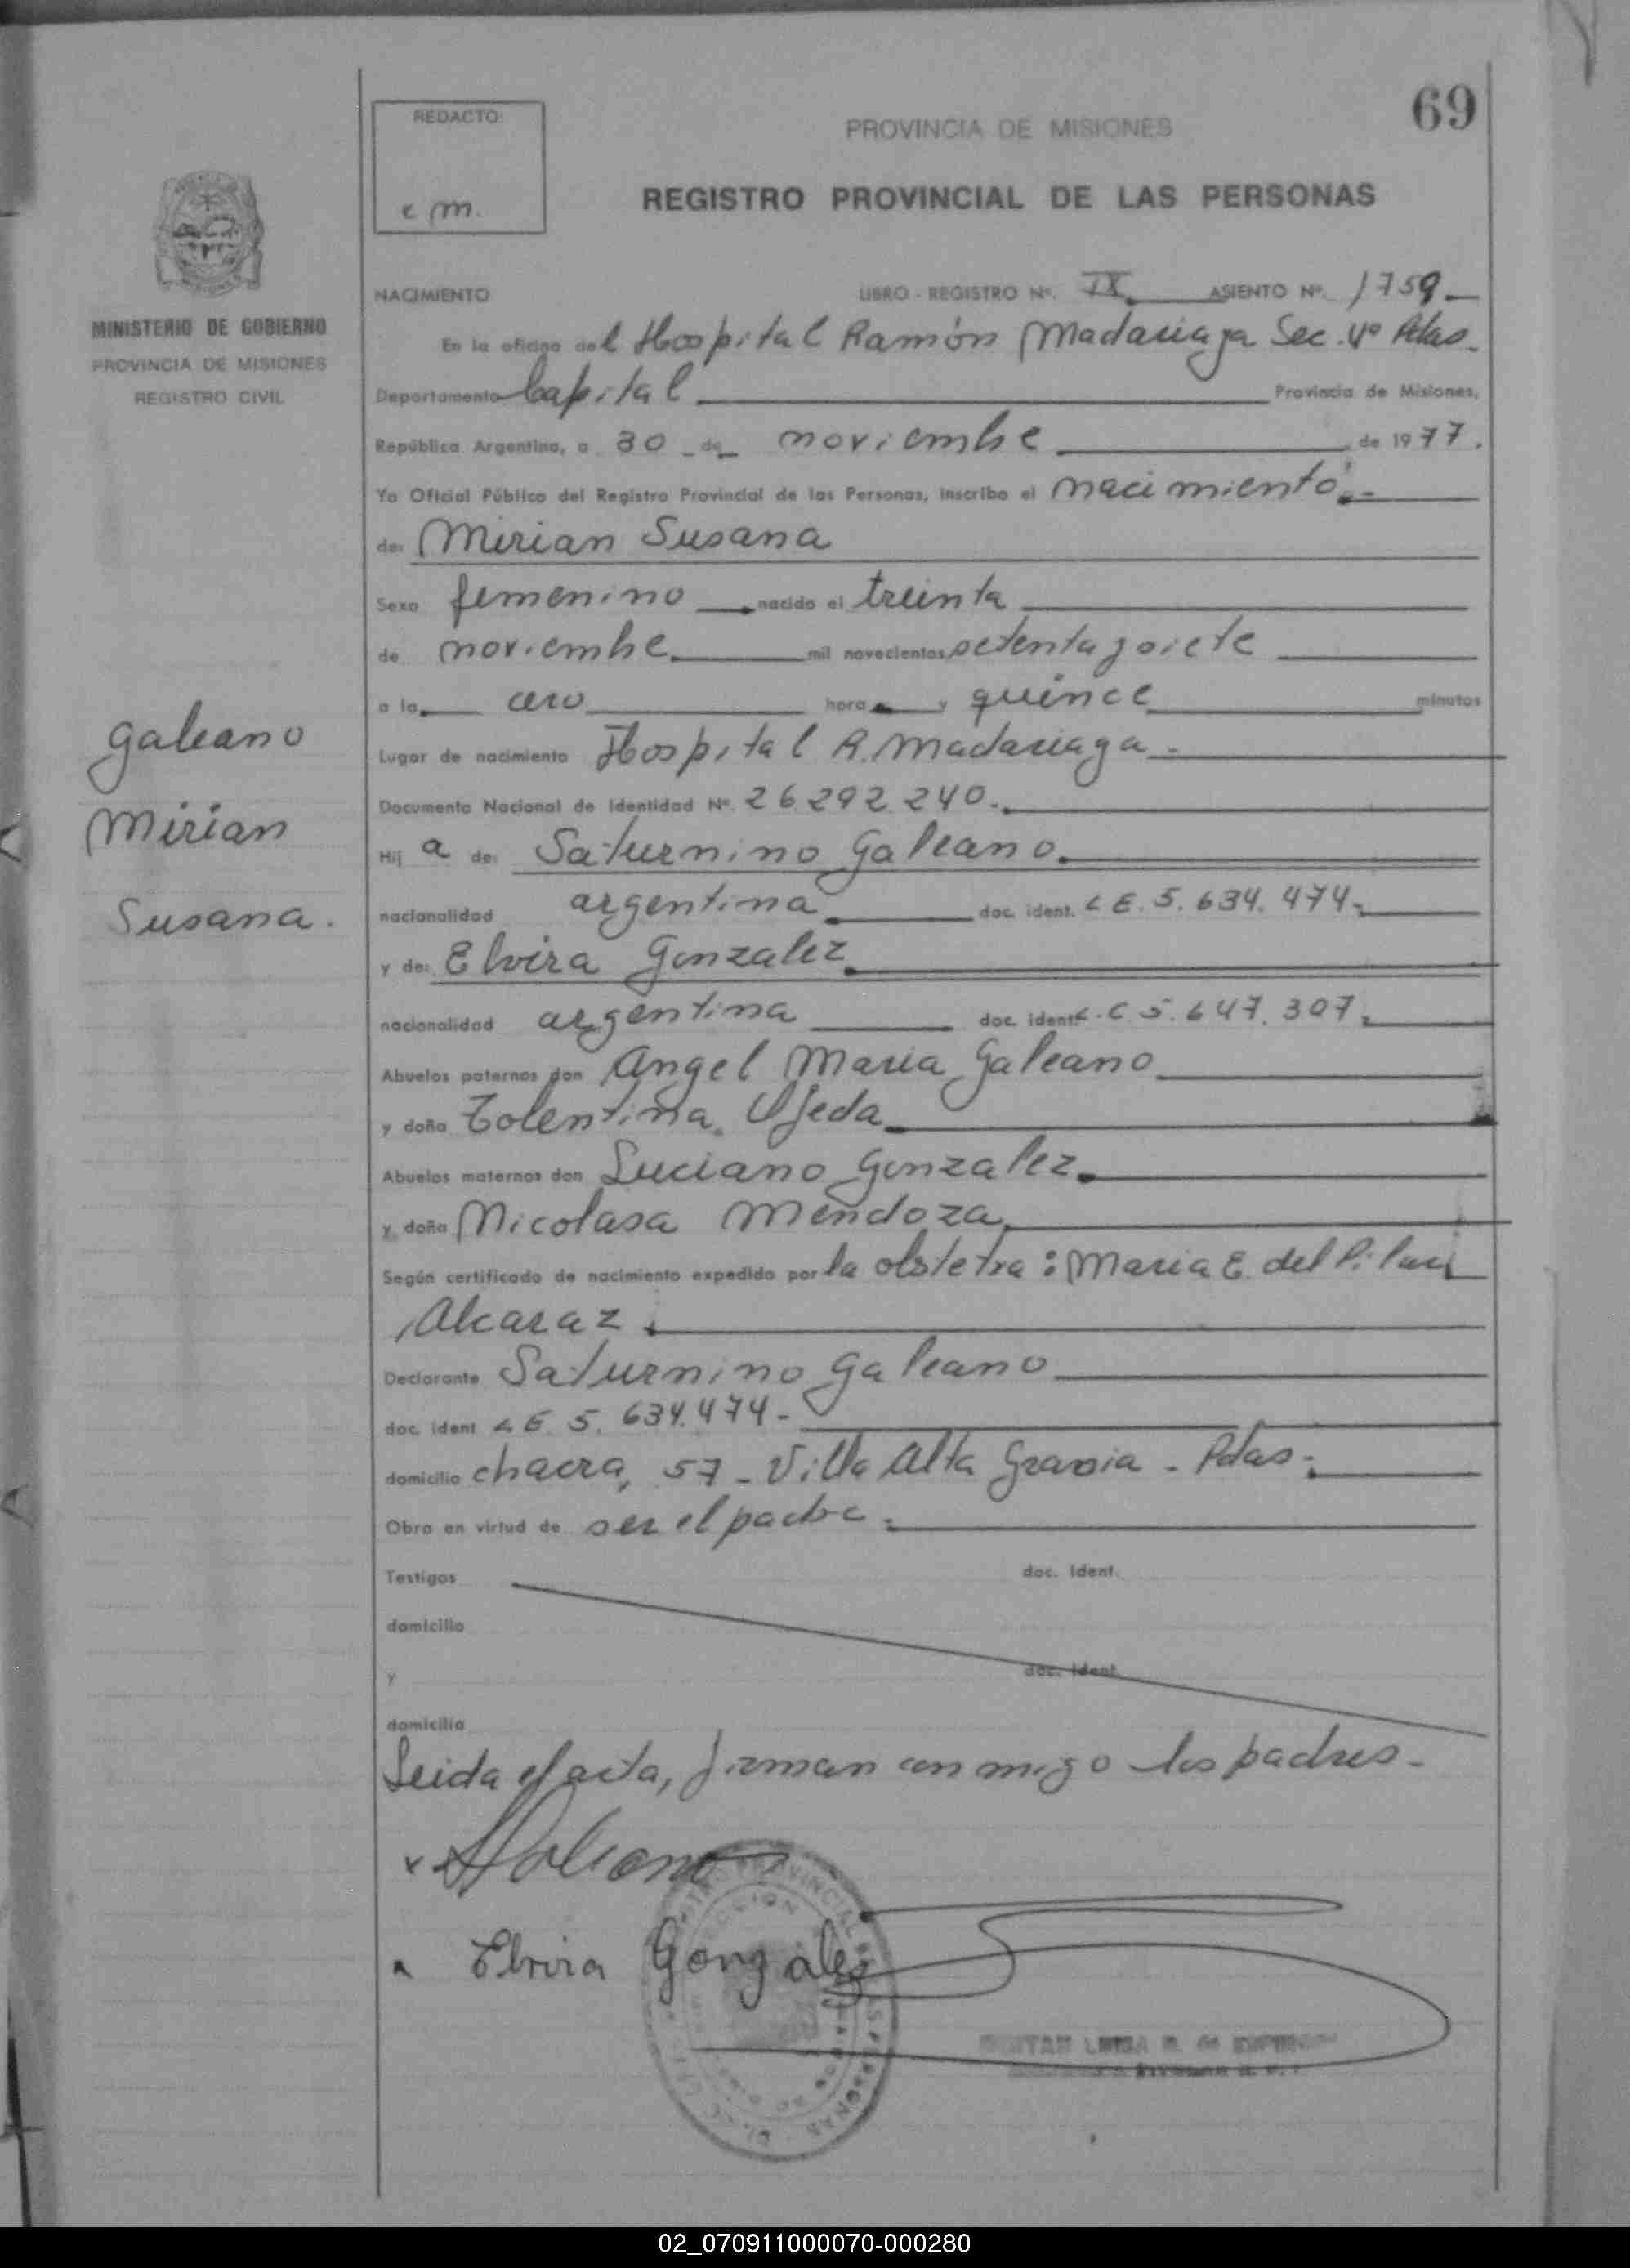 69
REDACTO:
e m.
PROVINCIA DE MISIONES
REGISTRO PROVINCIAL DE LAS PERSONAS
MINISTERIO DE GOBIERNO
PROVINCIA DE MISIONES
REGISTRO CIVIL
Galeano
Mirian
Susana.
NACIMIENTO LIBRO - REGISTRO Nº. IX ASIENTO Nº. 1759
En la oficina del Hospital Ramón Madariaga Sec. 4º Pdas.
Departamento Capital Provincia de Misiones,
República Argentina, a 30 de noviembre de 1977.
Yo Oficial Público del Registro Provincial de las Personas, inscribo el nacimiento.-
de: Mirian Susana
Sexo femenino nacido el treinta
de noviembre mil novecientos setenta y siete
a la cero hora y quince minutos
Lugar de nacimiento Hospital R. Madariaga.
Documento Nacional de Identidad Nº. 26.292.240.
Hij a de: Saturnino Galeano.
nacionalidad argentina doc. ident. L E. 5. 634. 474-
y de: Elvira Gonzalez
nacionalidad argentina doc. ident. L. C 5. 647. 307.
Abuelos paternos don Angel Maria Galeano
y doña Tolentina Ojeda
Abuelos maternos don Luciano Gonzalez.
y doña Nicolasa Mendoza
Según certificado de nacimiento expedido por la obstetra: Maria E. del Pilar
Alcaraz.
Declarante Saturnino Galeano
doc. ident L E. 5. 634.474-
domicilio chacra, 57 - Villa Alta Gracia - Pdas.
Obra en virtud de ser el padre.
Testigos doc. ident.
domicilio
y doc. ident.
domicilio
Leida el acta, firman conmigo los padres-
x Galeano
Elvira Gonzalez
02_070911000070-000280